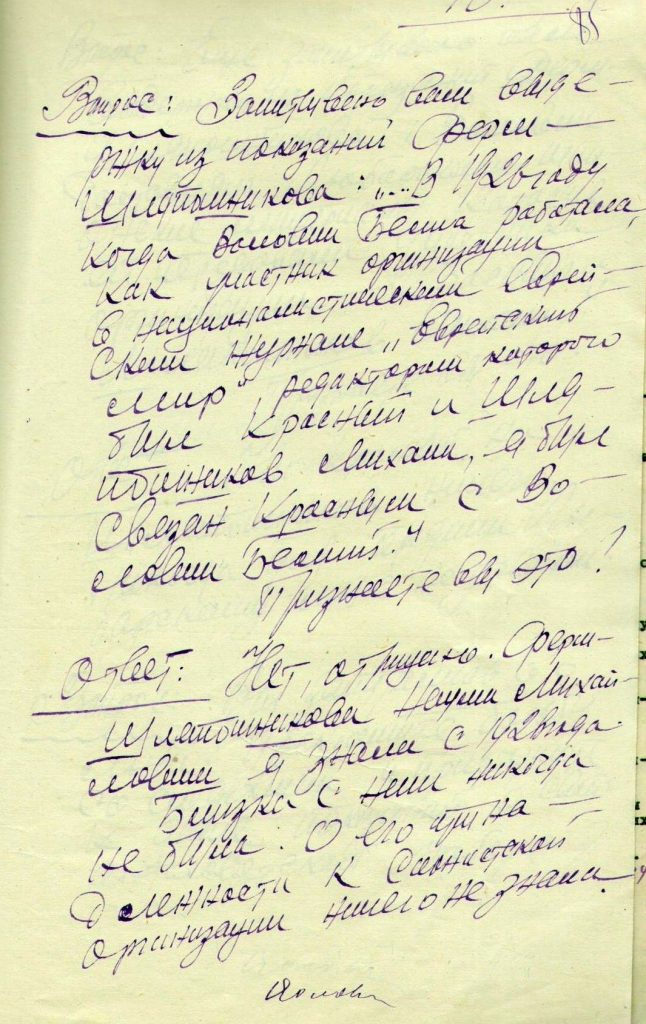 85
Вопрос: Зачитываю вам выде-
ржку из показаний Ферш-
Шляпошникова: „... В 1926 году
когда Воловиц Бейла работала,
как участник организации
в националистическом еврей-
ском журнале „Еврейский
мир", редактором которого
был Красный и Шля-
пошников Михаил, я был
связан Красным с Во-
ловиц Бейлой."
Признаете вы это?
Ответ: Нет, отрицаю. Ферш-
Шляпошникова Наума Михай-
ловича я знала с 1928 года.
Близка с ним никогда
не была. О его прина-
длежности к Сионистской
организации ничего не знала.